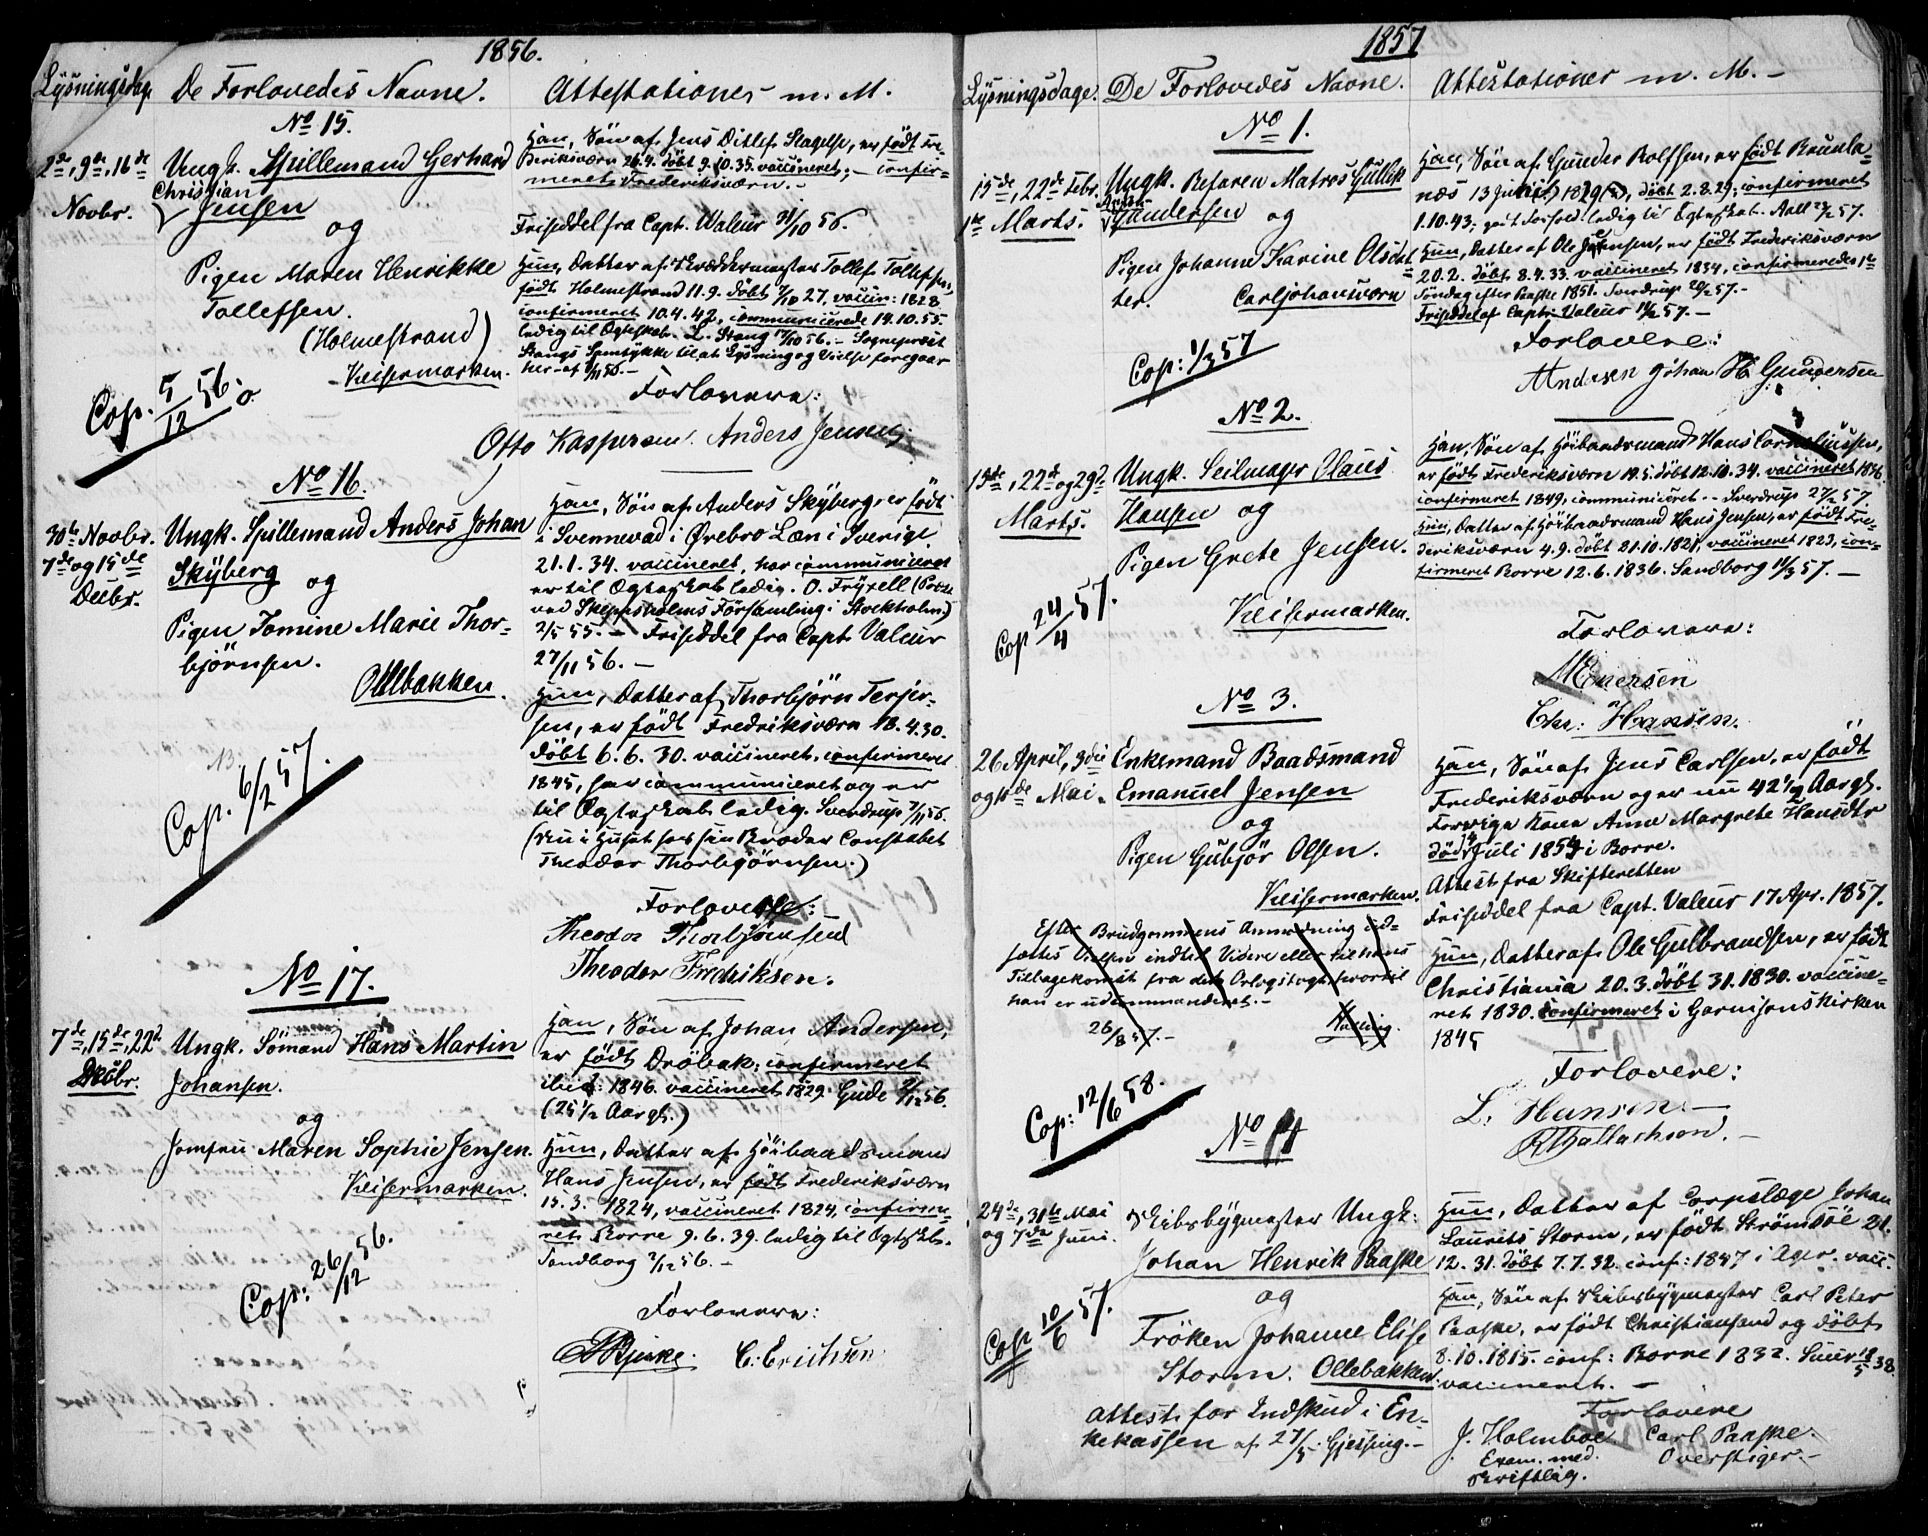 1856.
Lysningsdag. De Forlovedes Navne. Attestationer m. M.
No 15.
2de, 9de, 16de
Novbr.
Ungk. Spillemand Gerhard
Christian
Jensen
og
Pigen Maren Henrikke
Tollefsen.
(Holmestrand)
Keisermarken.
Cop. 5/12 56.
Han, Søn af Jens Ditlef Slagelse, er født Fre-
deriksværn 26.9. døbt 9.10.35. vaccineret, confir-
meret Frederiksværn.-
Frisedel fra Capt. Valeur 31/10 56.
Hun, Datter af Skræddermester Tollef Tollefsen,
født Holmestrand 11.9. døbt 7/10 27, vaccin: 1828
confirmeret 10.4.42, communicerede 14.10.55.
ledig til Egteskab. L. Stang 17/10 56.- Sogneprest
Stangs Samtykke til, at Lysning og Vielse foregaar
her af 8/11 56.-
Forlovere:
Otto Kaspersen. Anders Jensen.
No 16.
30te Novbr.
7de og 15de
Decbr.
Ungk. Spillemand Anders Johan
Skyberg og
Pigen Jomine Marie Thor-
bjørnsen.
Ollebakken.
Cop. 6/2 57.
Han, Søn af Anders Skyberg, er født
i Svennevad i Ørebro Læn i Sverige
21.1.34. vaccineret, har communiceret
er til Egteskab ledig. O. Fryxell
ved Skeppsholms Församling i Stockholm)
2/5 55.- Frisedel fra Capt. Valeur
27/11 56.-
Hun, Datter af Thorbjørn Terjer-
sen, er født Fredriksværn 18.4.30.
døbt 6.6.30. vaccineret, confirmeret
1845, har communiceret og er
til Egteskab ledig. Sverdrup 7/11 56.
(Nu i Huset hos sin Broder Constabel
Theodor Thorbjørnsen.)
Forlovere:
Theodor Thorbjørnsen
Theodor Fredriksen.
No 17.
7de, 15de, 22de
Decbr.
Ungk. Sømand Hans Martin
Johansen.
og
Jomfru Maren Sophie Jensen.
Keisermarken.
Cop: 26/12 56.
Han, Søn af Johan Andersen,
er født Drøbak, confirmeret
ibid: 1846. vaccineret 1829. Gude 2/12 56.
(25 1/2 Aargl.)
Hun, Datter af Høibaadsmand
Hans Jensen, er født Frederiksværn
15.3. 1824, vaccineret 1824, confirme-
ret Borre 9.6.39. ledig til Egtskb.
Sandborg 2/12 56.-
Forlovere:
Bjerke. C. Erichsen
1857
Lysningsdage. De Forlovedes Navne. Attestationer m. M.-
No 1.
15de, 22de Febr.
1te Marts.
Ungk. Reserven Matros Gullik
Gundersen og
Pigen Johanne Karine Olsdat-
ter. Carljohansværn
Cop: 1/3 57
Han, Søn af Gunder Rolfsen, er født Brunla-
næs 13 Juni 1829, døbt 2.8.29, confirmeret
1.10.43; ledig til Egteskab. Aall 22/2 57.
Hun, Datter af Ole Jensen, er født Frederiksværn
20.2. døbt 8.4.33. vaccineret 1834, confirmeredes 1te
Søndag efter Paaske 1851. Sverdrup 20/2 57.-
Frisedel af Capt: Valeur 14/2 57.-
Forlovere:
Andersen Johan H Gundersen
No 2.
15de, 22de og 29de
Marts.
Ungk. Seilmager Olaus
Hansen og
Pigen Grete Jensen.
Keisermarken.
Cop 24/4 57.
Han, Søn af Høibaadsmand Hans Corneliussen,
er født Frederiksværn 19.5. døbt 12.10.34. vaccineret 1836
confirmeret 1849, communiceret - Sverdrup 27/2 57
Hun, Datter af Høibaadsmand Hans Jensen, er født Fre-
deriksværn 4.9. døbt 21.10.1821, vaccineret 1823, con-
firmeret Borre 12.6.1836. Sandborg 11/3 57.-
Forlovere:
M Enersen
Chr: Hansen.
No 3.
26 April, 3die
og 10de Mai.
Enkemand Baadsmand
Emanuel Jensen
og
Pigen Gubjør Olsen.
Keisermarken.
Efter Brudgommens Anmodning ud-
sættes Vielsen indtil Videre eller til hans
Tilbagekomst fra det Orlogstogt, hvortil
han er udcommanderet.-
26/8 57.-
Cop: 12/6 58.
Han, Søn af Jens Carlsen, er født
Frederiksværn og er nu 42 1/2 Aargl.
Forrige Kone Anne Margrethe Hansdtr
død Juli 1854 i Borre.
Attest fra Skifteretten
Frisedel fra Capt. Valeur 17 Apr. 1857.
Hun, Datter af Ole Gulbrandsen, er født
Christiania 20.3. døbt 31. 1830. vaccine-
ret 1830. confirmeret i Garnisonskirken
1845
Forlovere:
L. Hansen.-
Thallachson.-
No 4
24de, 31te Mai
og 7de Juni.
Skibsbygmester Ungk:
Johan Henrik Paaske
og
Frøken Johanne Elise
Storm. Ollebakken.
Cop 10/6 57.
Attest for Indskud i En-
kekassen af 27/5. Gjessing.-
Hun, Datter af Corpslæge Johan
Laurits Storm, er født Strømsöe 21.
12.31. døbt 7.7.32. conf: 1847 i Ager. vacc.
Han, Søn af Skibsbygmester Carl Peter
Paaske, er født Christiansand og døbt
8.10.1815. conf: Borre 1832.
vaccineret.-
Forlovere
J. Holmboe Carl Paaske.
Exam. med. Overstiger.-
Skriftlig.